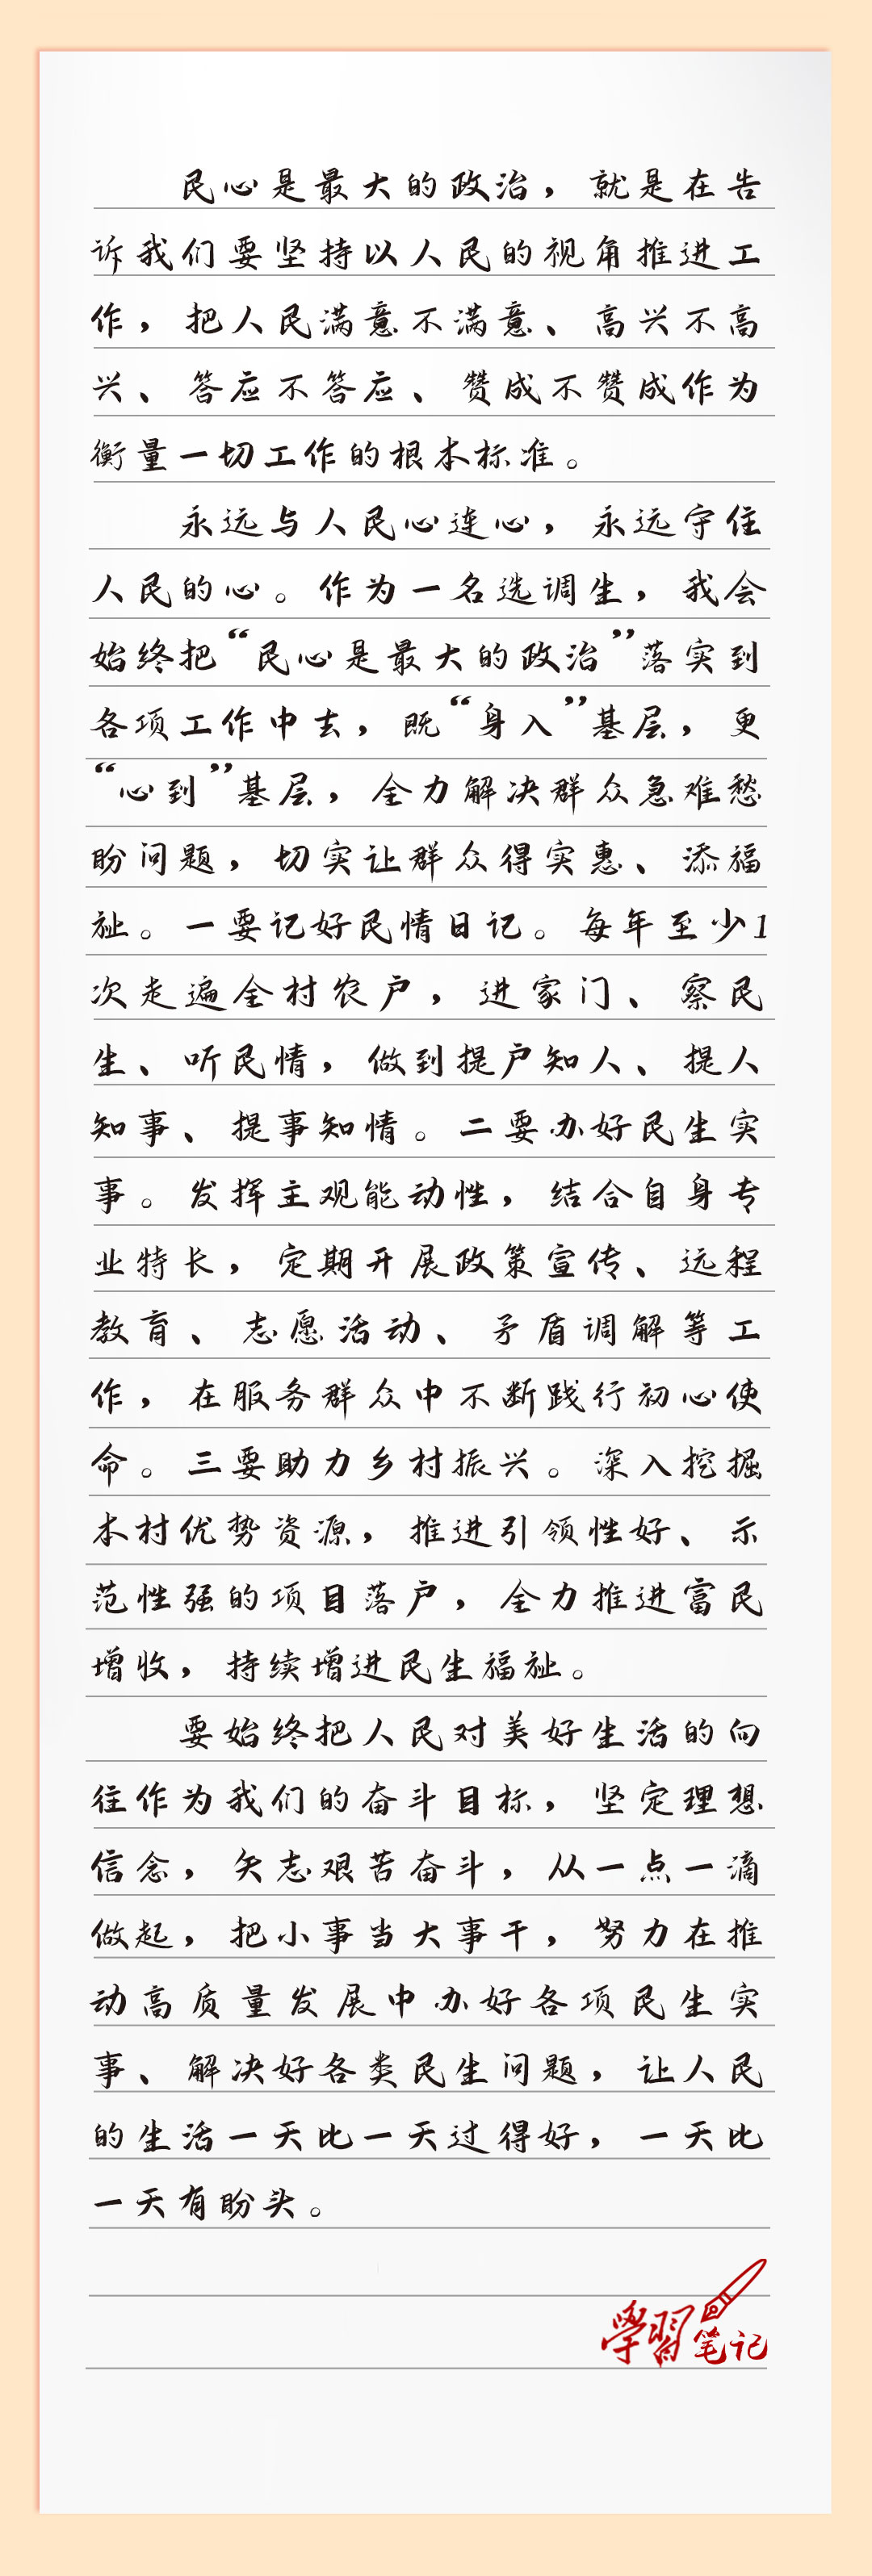 民心是最大的政治，就是在告
诉我们要坚持以人民的视角推进工
作，把人民满意不满意、高兴不高
兴、答应不答应、赞成不赞成作为
衡量一切工作的根本标准。
永远与人民心连心，永远守住
人民的心。作为一名选调生，我会
始终把“民心是最大的政治”落实到
各项工作中去，既“身入”基层，更
“心到”基层，全力解决群众急难愁
盼问题，切实让群众得实惠、添福
祉。一要记好民情日记。每年至少1
次走遍全村农户，进家门、察民
生、听民情，做到提户知人、提人
知事、提事知情。二要办好民生实
事。发挥主观能动性，结合自身专
业特长，定期开展政策宣传、远程
教育、志愿活动、矛盾调解等工
作，在服务群众中不断践行初心使
命。三要助力乡村振兴。深入挖掘
本村优势资源，推进引领性好、示
范性强的项目落户，全力推进富民
增收，持续增进民生福祉。
要始终把人民对美好生活的向
往作为我们的奋斗目标，坚定理想
信念，矢志艰苦奋斗，从一点一滴
做起，把小事当大事干，努力在推
动高质量发展中办好各项民生实
事、解决好各类民生问题，让人民
的生活一天比一天过得好，一天比
一天有盼头。
學習笔记